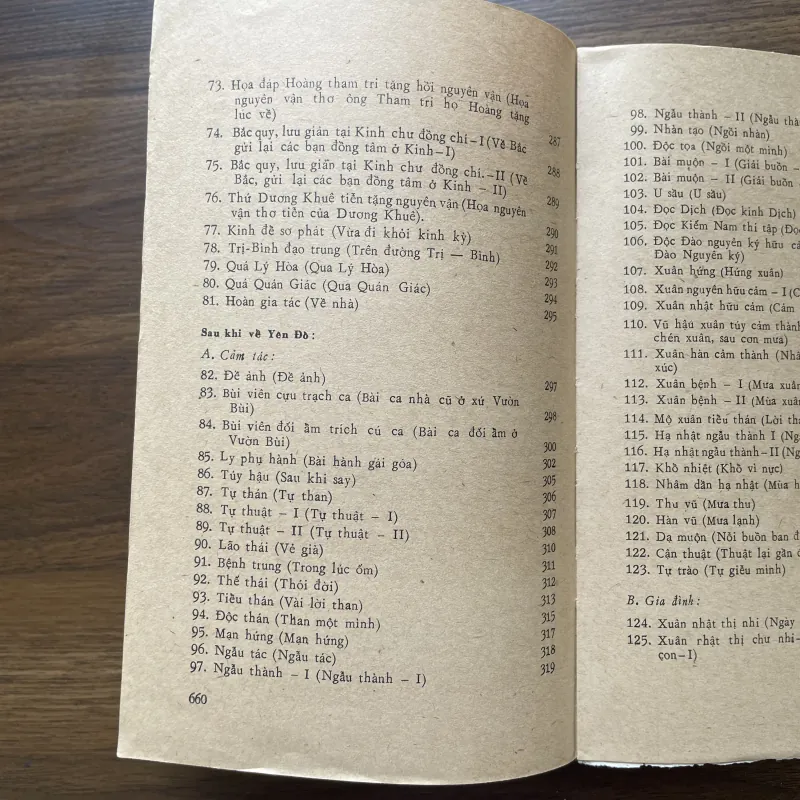 73. Họa đáp Hoàng tham tri tặng hồi nguyên vận (Họa
nguyên vận thơ ông Tham tri họ Hoàng tặng
lúc về) 287
74. Bắc quy, lưu giản tại Kinh chư đồng chí-I (Về Bắc
gửi lại các bạn đồng tâm ở Kinh-I) 288
75. Bắc quy, lưu giản tại Kinh chư đồng chí.-II (Về
Bắc, gửi lại các bạn đồng tâm ở Kinh - II) 289
76. Thứ Dương Khuê tiễn tặng nguyên vận (Họa nguyên
vận thơ tiễn của Dương Khuê). 290
77. Kinh đề sơ phát (Vừa đi khỏi kinh kỳ) 291
78. Trị-Bình đạo trung (Trên đường Trị — Bình) 292
79. Quá Lý Hòa (Qua Lý Hòa) 293
80. Quá Quán Giác (Qua Quán Giác) 294
81. Hoàn gia tác (Về nhà) 295
Sau khi về Yên Đổ:
A. Cảm tác:
82. Đề ảnh (Đề ảnh) 297
83. Bùi viên cựu trạch ca (Bài ca nhà cũ ở xứ Vườn
Bùi) 298
84. Bùi viên đối ẩm trích cú ca (Bài ca đối ẩm ở
Vườn Bùi) 300
85. Ly phụ hành (Bài hành gái góa) 302
86. Túy hậu (Sau khi say) 305
87. Tự thán (Tự than) 306
88. Tự thuật - I (Tự thuật - I) 307
89. Tự thuật - II (Tự thuật - II) 308
90. Lão thái (Vẻ già) 310
91. Bệnh trung (Trong lúc ốm) 311
92. Thế thái (Thói đời) 312
93. Tiểu thán (Vài lời than) 313
94. Độc thán (Than một mình) 315
95. Mạn hứng (Mạn hứng) 317
96. Ngẫu tác (Ngẫu tác) 318
97. Ngẫu thành - I (Ngẫu thành - I) 319
660
98. Ngẫu thành - II (Ngẫu thàn
99. Nhàn tạo (Ngồi nhàn)
100. Độc tọa (Ngồi một mình)
101. Bài muộn - I (Giải buồn -
102. Bài muộn - II (Giải buồn
103. U sầu (U sầu)
104. Đọc Dịch (Đọc kinh Dịch)
105. Đọc Kiếm Nam thi tập (Đọ
106. Độc Đào nguyên ký hữu cả
Đào Nguyên ký)
107. Xuân hứng (Hứng xuân)
108. Xuân nguyên hữu cảm - I (C
109. Xuân nhật hữu cảm (Cảm
110. Vũ hậu xuân túy cảm thành
chén xuân, sau cơn mưa)
111. Xuân hàn cảm thành (Nhâ
xúc)
112. Xuân bệnh - I (Mưa xuân
113. Xuân bệnh - II (Mùa xuân
114. Mộ xuân tiểu thán (Lời thá
115. Hạ nhật ngẫu thành I (Ngà
116. Hạ nhật ngẫu thành-II (Ng
117. Khổ nhiệt (Khổ vì nực)
118. Nhâm dần hạ nhật (Mùa h
119. Thu vũ (Mưa thu)
120. Hàn vũ (Mưa lạnh)
121. Dạ muộn (Nỗi buồn ban đ
122. Cận thuật (Thuật lại gần đ
123. Tự trào (Tự giễu mình)
B. Gia đình:
124. Xuân nhật thị nhi (Ngày
125. Xuân nhật thị chư nhi-
con-I)